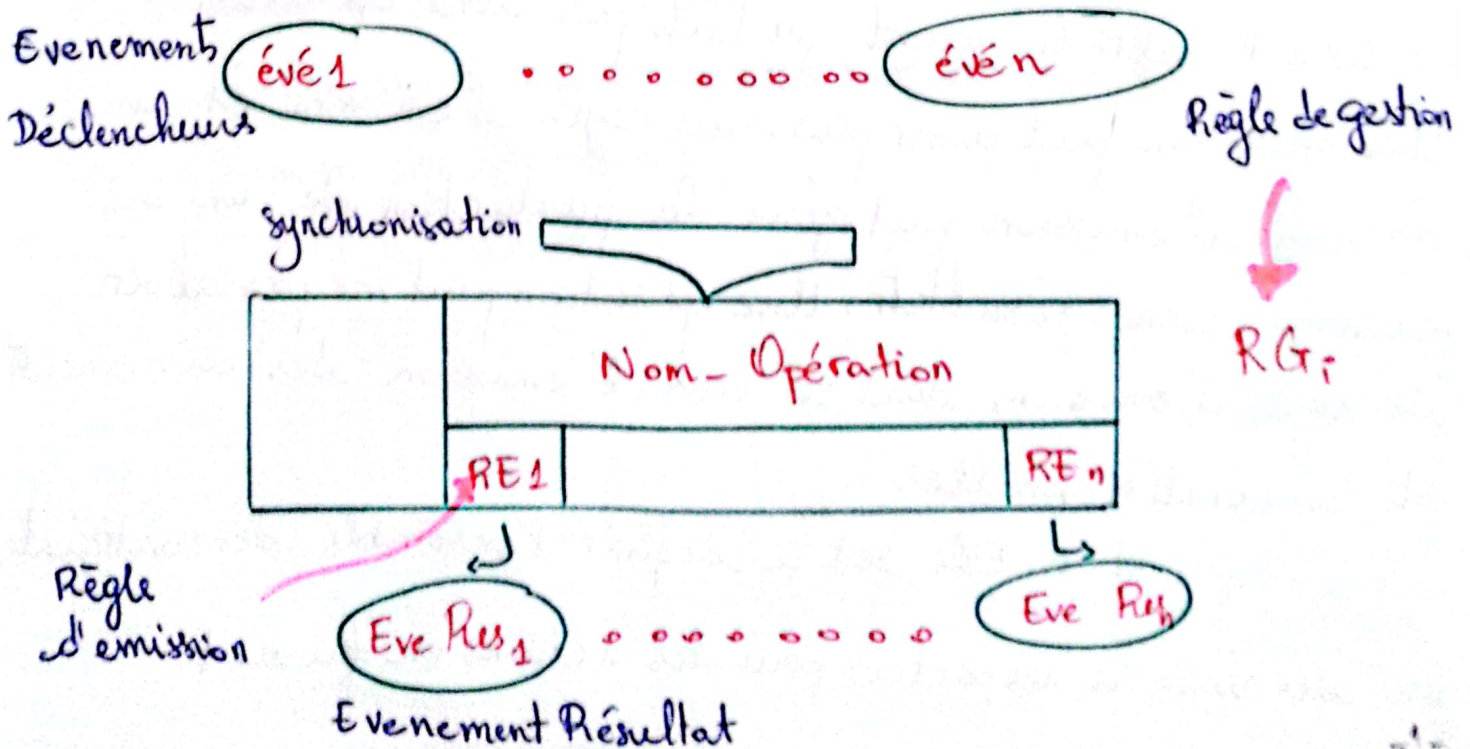 Evenements
Déclencheurs
évé 1
évé n
Règle de gestion
Synchronisation
Nom - Opération
RGi
RE1
REn
Règle
d'emission
Eve Res1
Eve Resn
Evenement Résultat